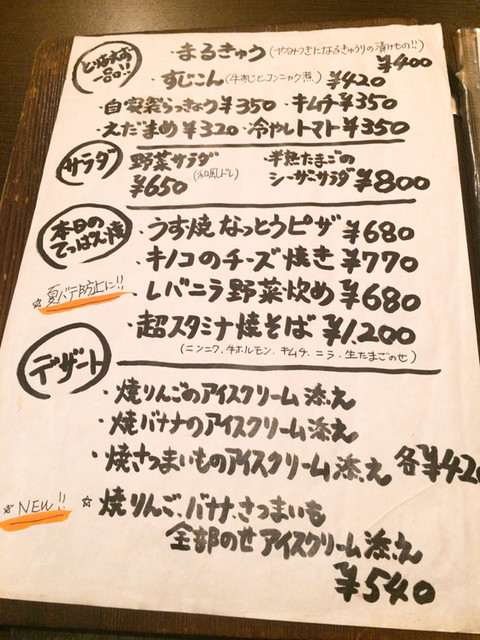 とりあえず一品!!
・まるきゅう (やみつきになるきゅうりの漬けもの!!) ¥400
すじこん (牛すじとコンニャク煮) ¥420
・自家製らっきょう¥350 ・キムチ¥350
・えだまめ¥320 ・冷やしトマト¥350
サラダ
野菜サラダ (和風ドレ) ¥650
・半熟たまごのシーザーサラダ ¥800
本日のてっぱん焼
・うす焼なっとうピザ ¥680
・キノコのチーズ焼き ¥770
☆夏バテ防止に!! ・レバニラ野菜炒め ¥680
・超スタミナ焼そば ¥1,200
(ニンニク.牛ホルモン.キムチ.ニラ.生たまごのせ)
デザート
・焼りんごのアイスクリーム添え
・焼バナナのアイスクリーム添え
・焼さつまいものアイスクリーム添え 各¥420
☆NEW!! ☆焼りんご.バナナ.さつまいも
全部のせアイスクリーム添え
¥540